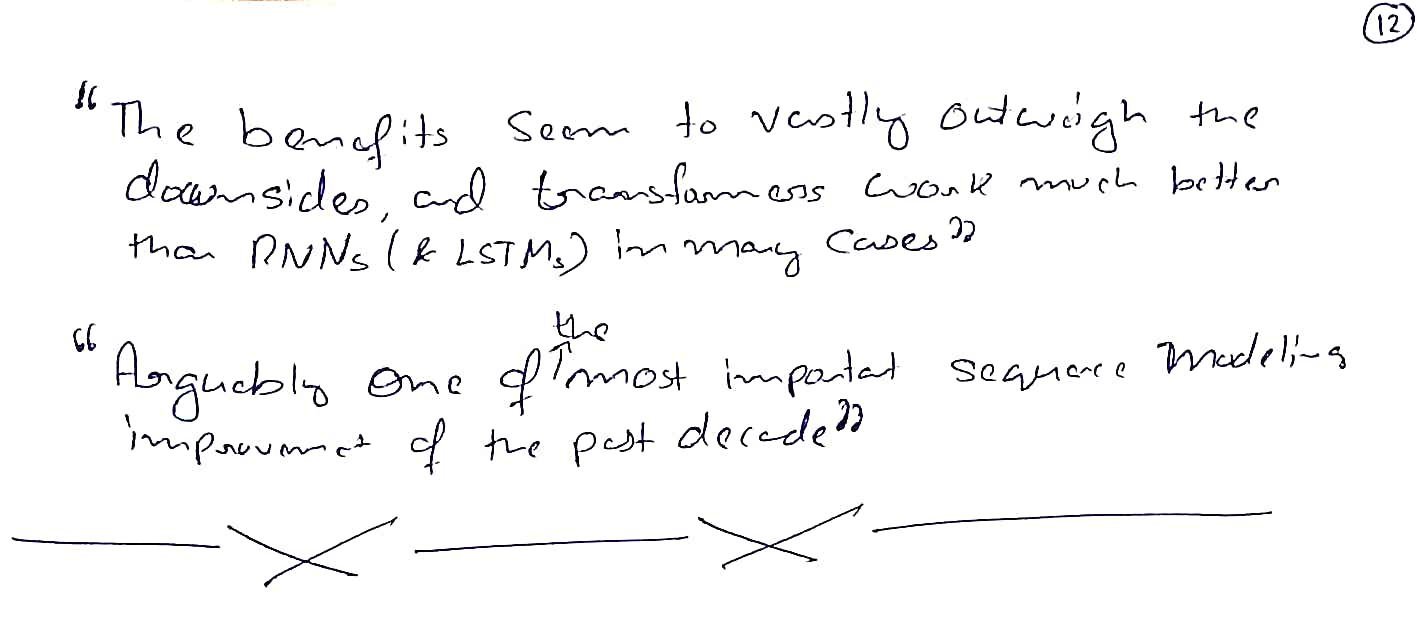 12
"The benefits seem to vastly outweigh the
downsides, and transformers work much better
than RNNs (& LSTMs) in many cases"
"Arguably one of the most important sequence modeling
improvement of the past decade"